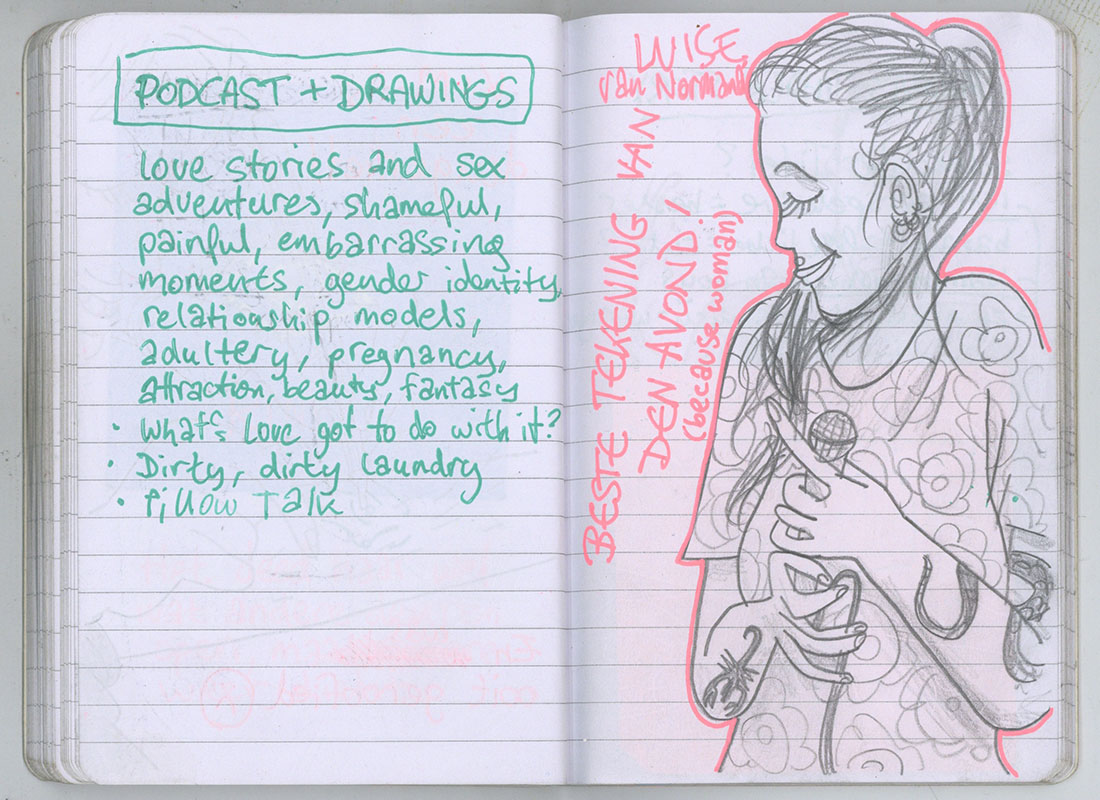 PODCAST + DRAWINGS
love stories and sex
adventures, shameful,
painful, embarrassing
moments, gender identity,
relationship models,
adultery, pregnancy,
attraction, beauty, fantasy
• what's Love got to do with it?
• Dirty, dirty laundry
• Pillow Talk
WISE
van Normand
BESTE TEKENING VAN
DEN AVOND!
(because woman)